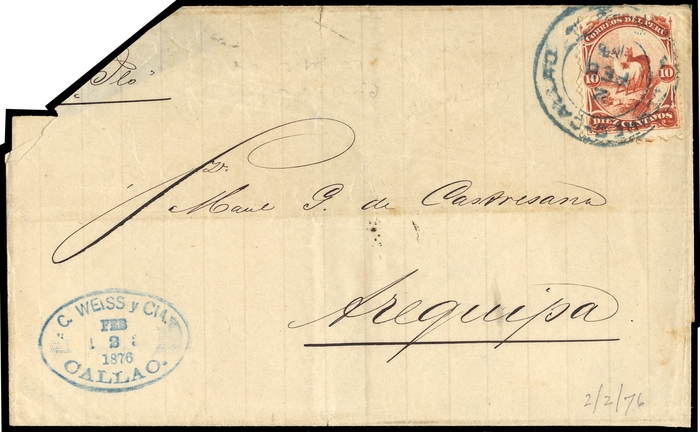 Pto
CORREOS DEL PERU
10 10
DIEZ CENTAVOS
CALLAO
FEB
2
Sr.
Manl G. de Castresana
Arequipa.
C. WEISS y CIA.
FEB
2
1876
CALLAO.
2/2/76